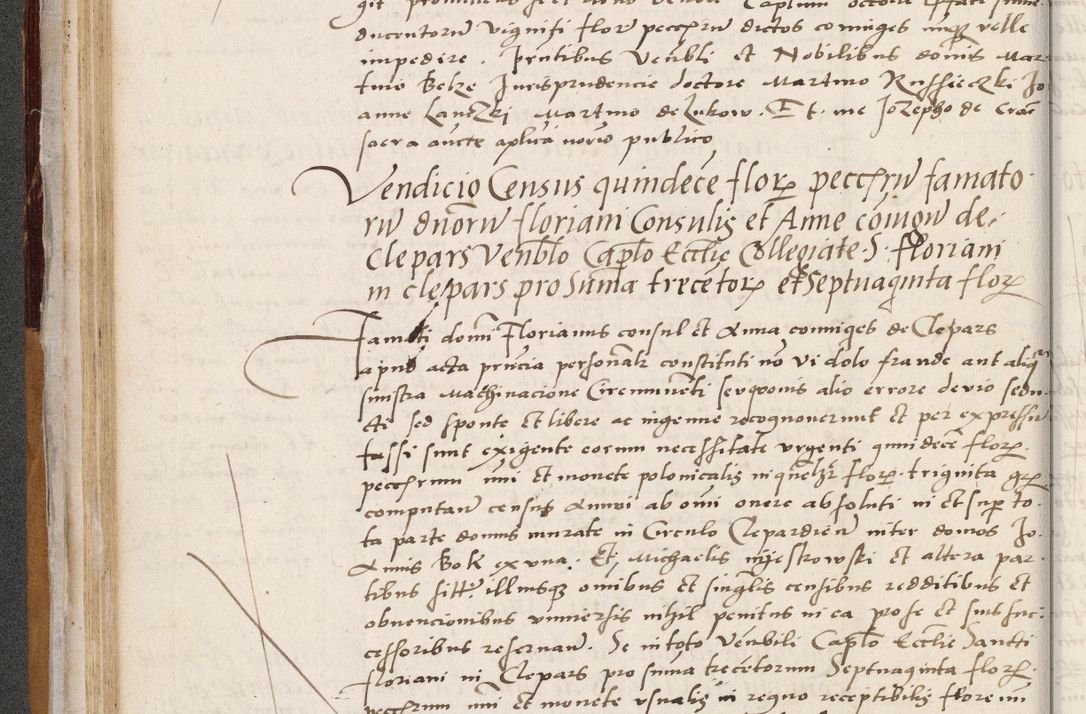 ducentorū viginti flor peccꝭrū dictos coniuges nūqꝫ velle
impedire . Pr̄ntibus Veūbli et Nobilibus domīs Mar-
tino Belze Jurisprudencie doctore Martino Russieczki Jo
anne Lanczki Martino de Lukow . Et . me Jozepho de Crā
sacra aucte aplica norio publico
Vendicio Census quindecē florꝫ peccꝭrū famato
rū dnorū floriani Consulis et Anne cōiugū de
Clepars Venblo Caplo Ecclīe Collegiate S. floriani
in clepars pro Suma trecētorꝫ et Septuaginta florꝫ
Famati domi Florianus consul et Anna coniuges de Clepars
apud acta pn̄cia personalr constituti nō vi dolo fraude aut aliqª
sinistra Machinacione Circumuēti seu quouis alio errore deuio sedu-
cti sed sponte et libere ac ingenue recognouerunt et per expressū
fassi sunt exigente eorum necessitate vrgenti quīdecē florꝫ .
peccꝭrum nūi et monete polonicalis in quēlꝫ florꝫ . triginta grꝫ
computan census Annui ab om̄i onere absoluti in et sup to-
ta parte domus murate in Circulo Clepardien̄ inter domos Jo-
Annis Bok ex vna . Et, Michaelis Mijestrowski et altera par-
tibus sitt illiusqꝫ omībus et singlis censibus redditibus et
obuencionibus vniuersis nihil penitus in ea pro se et suis suc-
cessoribus reseruan . Se in toto Venbili Caplo Ecclīe Sancti
floriani in Clepars pro suma trecētorum Septuaginta florꝫ .
peccꝭrum nūi et monete vsualis in regno receptibilis florenū